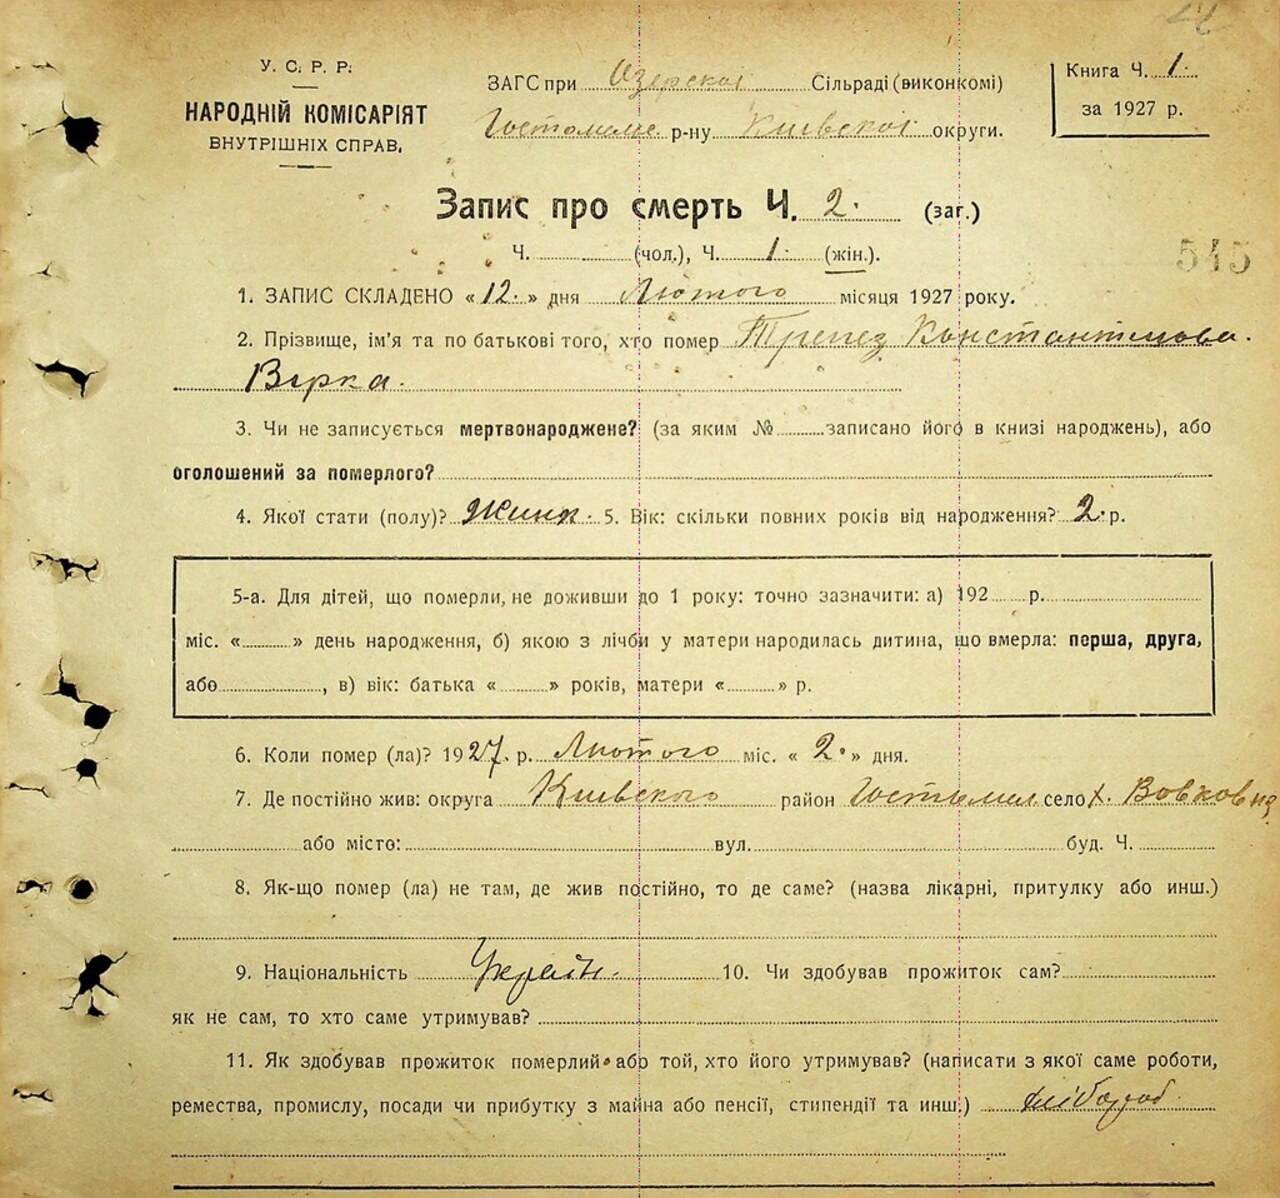 У. С. Р. Р.
НАРОДНІЙ КОМІСАРІЯТ
ВНУТРІШНІХ СПРАВ.
ЗАГС при Озерскої Сільраді (виконкомі)
Гостомельс р-ну Київскої округи.
Книга Ч. 1.
за 1927 р.
Запис про смерть Ч. 2. (заг.)
Ч. (чол.), Ч. 1. (жін.).
545
1. ЗАПИС СКЛАДЕНО « 12. » дня Лютого місяця 1927 року.
2. Прізвище, ім'я та по батькові того, хто помер Трепез Константинова.
Вѣрка.
3. Чи не записується мертвонароджене? (за яким № записано його в книзі народжень), або
оголошений за померлого?
4. Якої стати (полу)? Жинк. 5. Вік: скільки повних років від народження? 2. р.
5-а. Для дітей, що померли, не доживши до 1 року: точно зазначити: а) 192 р.
міс. « » день народження, б) якою з лічби у матери народилась дитина, що вмерла: перша, друга,
або , в) вік: батька « » років, матери « » р.
6. Коли помер (ла)? 1927. р. Лютого міс. « 2. » дня.
7. Де постійно жив: округа Київского район Гостомел. село х. Вовковня
або місто: вул. буд. Ч.
8. Як-що помер (ла) не там, де жив постійно, то де саме? (назва лікарні, притулку або инш.)
9. Національність Україн. 10. Чи здобував прожиток сам?
як не сам, то хто саме утримував?
11. Як здобував прожиток померлий або той, хто його утримував? (написати з якої саме роботи,
ремества, промислу, посади чи прибутку з майна або пенсії, стипендії та инш.) хлібороб